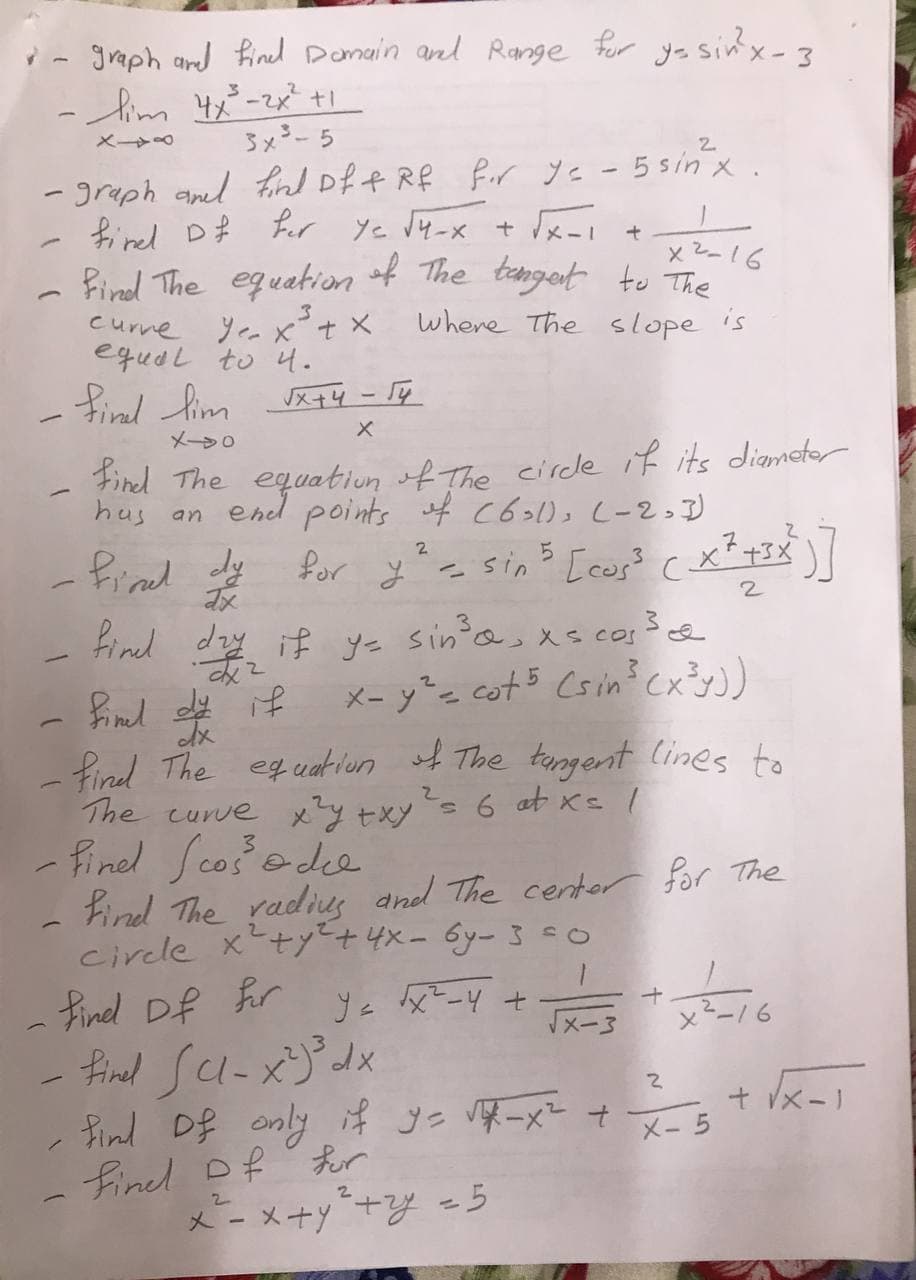 - graph and find Domain and Range for y = sin²x - 3
- lim x→∞ (4x³ - 2x² + 1)/(3x³ - 5)
- graph and find Df & Rf for y = - 5 sin²x .
- find Df for y = √(4-x) + √(x-1) + 1/(x² - 16)
- find The equation of The tangent to The
curve y = x³ + x where The slope is
equal to 4.
- find lim x→0 (√(x+4) - √4)/x
- find The equation of The circle if its diameter
has an end points of (6,1), (-2,3)
- find dy/dx for y² = sin⁵ [cos³ ((x⁷ + 3x²)/2)]
- find d2y/dx² if y = sin³θ, x = cos³θ
- find dy/dx if x - y² = cot⁵ (sin³ (x³y))
- find The equation of The tangent lines to
The curve x²y + xy² = 6 at x = 1
- find ∫cos³θdθ
- find The radius and The center for The
circle x² + y² + 4x - 6y - 3 = 0
- find Df for y = √(x² - 4) + 1/√(x-3) + 1/(x² - 16)
- find ∫(1 - x²)³ dx
- find Df only if y = √(4 - x²) + 2/(x - 5) + √(x - 1)
- find Df for
x² - x + y² + 2y = 5